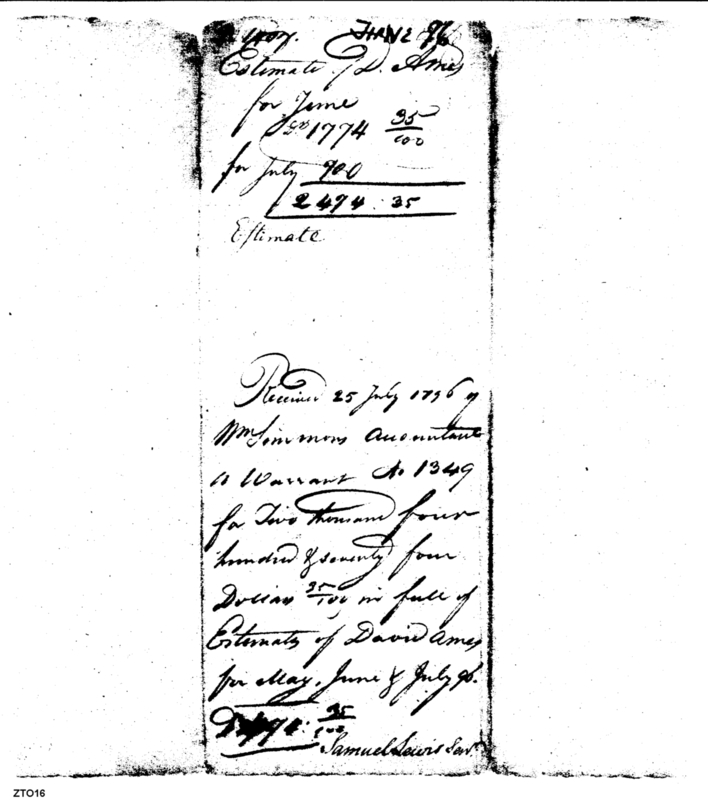 JUNE 96
Estimate /D. Ames
for June
1774 35/100
for July 900
2474 . 35
Estimate
Received 25 July 1796 of
Wm Simmons Accountant
a Warrant No 1349
for Two thousand four
hundred & seventy four
Dollars 35/100 in full of
Estimate of David Ames
for May, June & July 96.
D2474: 35/100
Samuel Lewis Senr
ZTO16